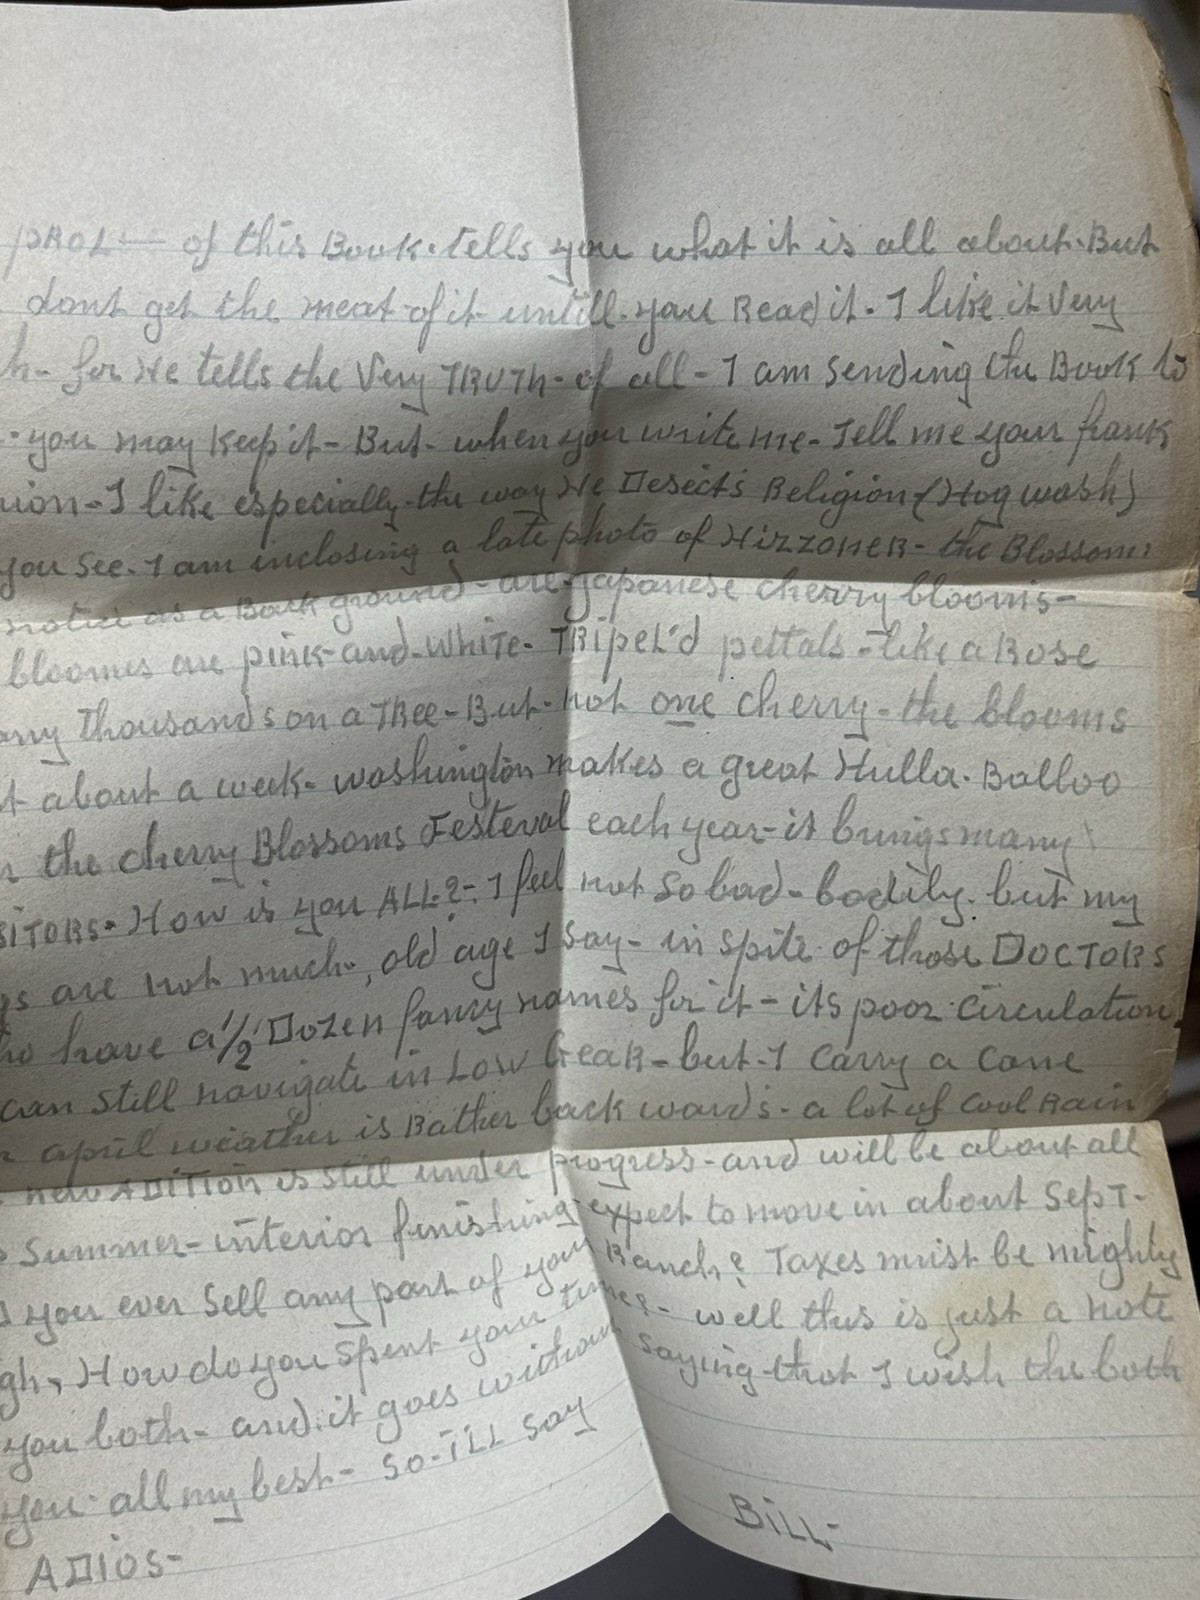 PROL— of this Book. tells you what it is all about. But
dont get the meat of it untill you Read it. I like it Very
h- for He tells the Very TRUTh- of all- I am Sending the Book to
you may Keep it- But- when you write me- Tell me your frank
nion- I like especially the way He Desects Religion-(Hog wash)
you See. I am inclosing a late photo of HizzoneR- the Blossoms
notice as a Back ground- are- japanese cherry blooms-
bloomes are pink and white- TRipeL'd pettals- like a Rose
any Thousands on a TRee- But- not one cherry- the blooms
t about a week- washington makes a great Hulla. Balloo
the cherry Blossoms Festeval each year- it brings many
SITORS. How is you ALL?- I feel not So bad- bodily. but my
gs are not much, old age I Say- in spite of those DOCTORS
ho have a 1/2 Dozen fancy names for it- its poor Circulation.
can Still navigate in Low GeaR- but- I Carry a Cane
april weather is Rather back wards- a lot of Cool Rain
new ADITION is Still under progress- and will be about all
Summer- interior finishing expect to move in about SepT-
you ever Sell any part of your Ranch? Taxes must be mighty
gh, How do you Spent your time?- well this is just a note
you both- and it goes without Saying that I wish the both
you all my best- So-ILL Say
ADIOS-
BiLL-